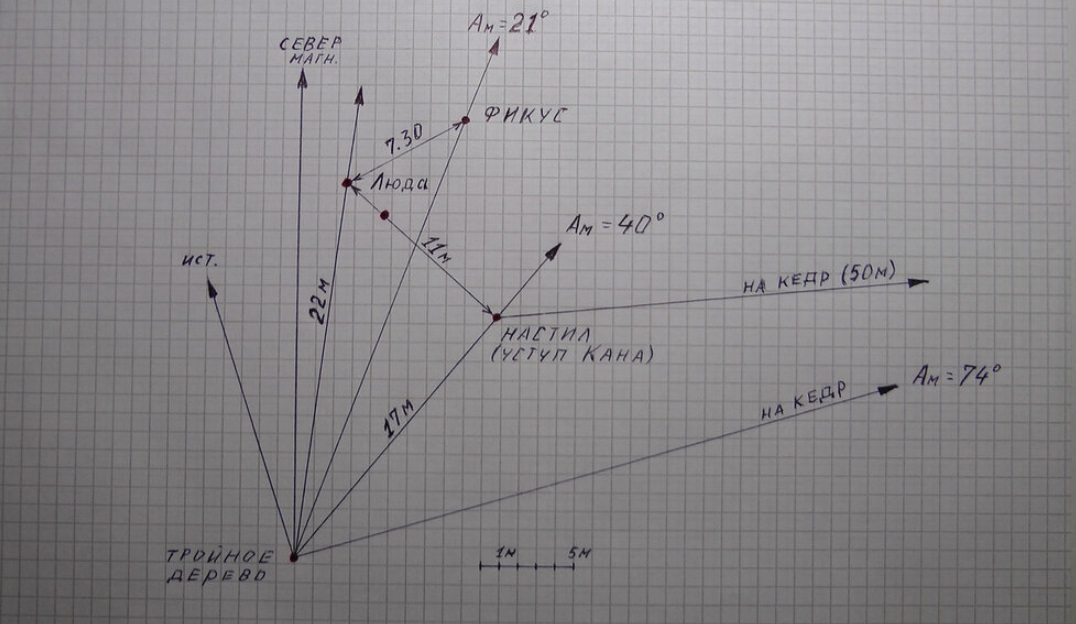 Aм = 21°
СЕВЕР
МАГН.
ФИКУС
7.30
Люда
Aм = 40°
11м
ИСТ.
НА КЕДР (50м)
22м
НАСТИЛ
(УСТУП КАНА)
Aм = 74°
НА КЕДР
17м
ТРОЙНОЕ
ДЕРЕВО
1м 5м